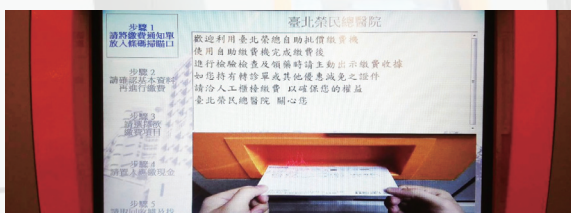 臺北榮民總醫院
步驟 1
請將繳費通知單
放入條碼掃瞄口
步驟 2
請確認基本資料
再進行繳費
步驟 3
請選擇欲
繳費項目
步驟 4
請置入應繳現金
步驟 5
歡迎利用臺北榮總自助批價繳費機
使用自助繳費機完成繳費後
進行檢驗檢查及領藥時請主動出示繳費收據
如您持有轉診單或其他優惠減免之證件
請洽人工櫃檯繳費 以確保您的權益
臺北榮民總醫院 關心您